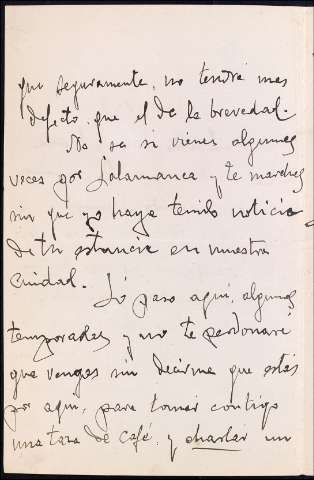 que seguramente, no tendrá mas
defecto que el de la brevedad.
No se si vienes algunas
veces por Salamanca y te marchas
sin que yo haya tenido noticia
de tu estancia en nuestra
Ciudad.
Yo paso aqui, algunas
temporadas y no te perdonaré
que vengas sin decirme que estás
por aqui, para tomar contigo
una taza de café, y charlar un